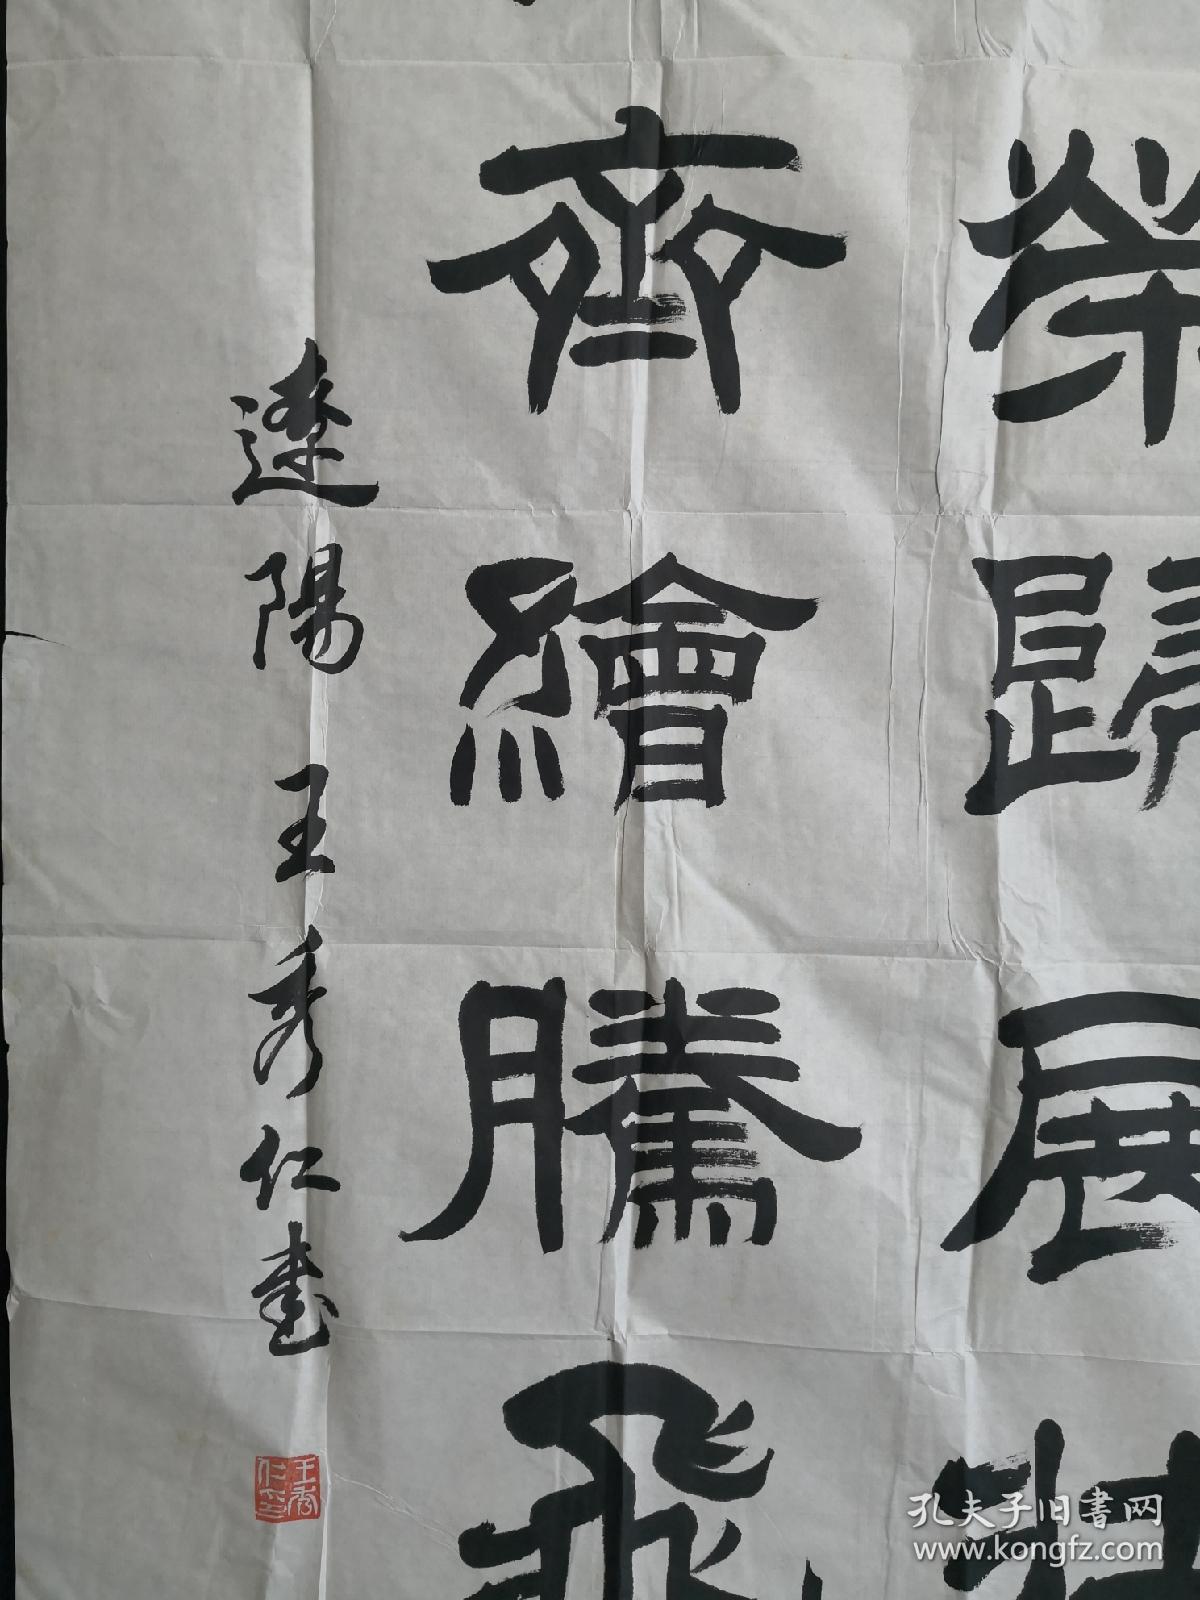 榮歸展壯
齊繪騰飛
遼陽王秀仁書
王秀仁印
孔夫子旧書网
www.kongfz.com